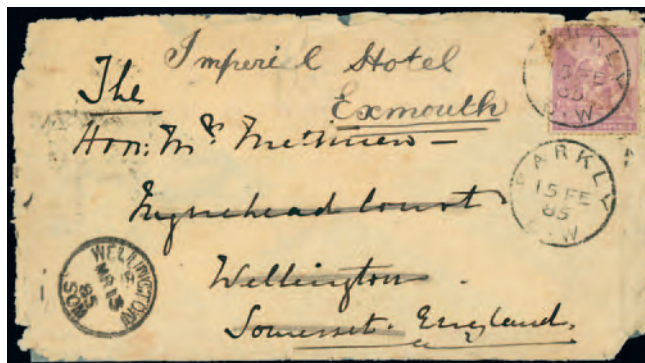 Imperial Hotel
Exmouth
The
Hon: Mrs Methuen –
Nynehead Court
Wellington
Somerset. England.
BARKLY
15 FE
85
G.W
BARKLY
15 FE
85
G.W
WELLINGTON
MR 13
85
SOM